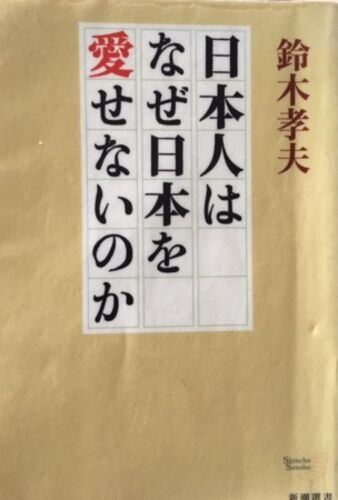 鈴木孝夫
日本人は
なぜ日本を
愛せないのか
Shincho
Sensho
新潮選書